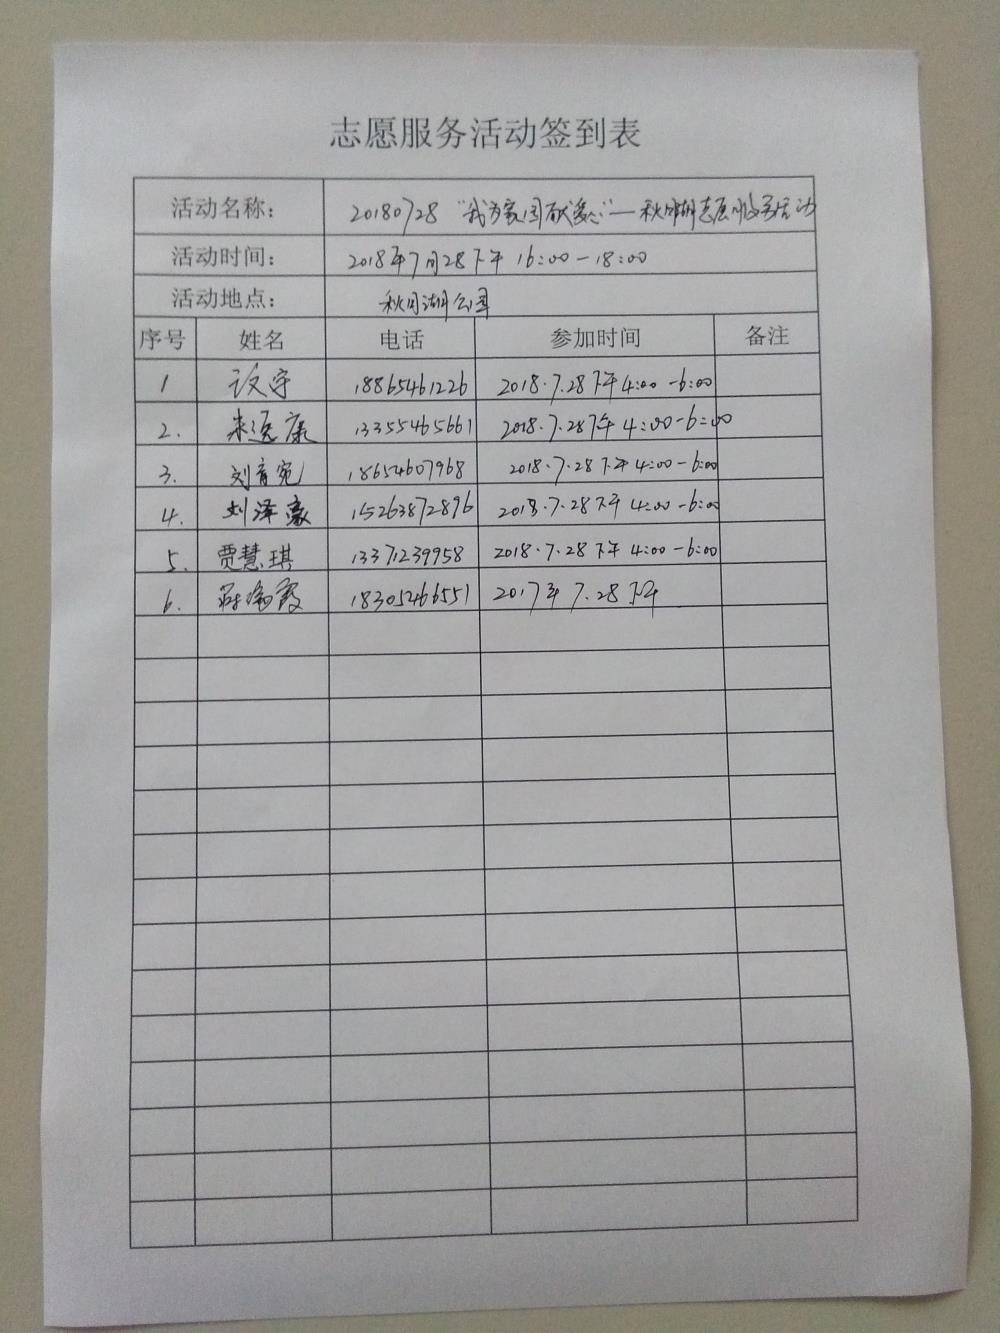 志愿服务活动签到表
活动名称： 20180728 "我为家园献爱心"—秋月湖志愿服务活动
活动时间： 2018年7月28下午 16:00-18:00
活动地点： 秋月湖公园
序号 姓名 电话 参加时间 备注
1 18865461226 2018.7.28下午4:00-6:00
2. 朱逸康 13355465661 2018.7.28下午4:00-6:00
3. 刘育宛 18654607968 2018.7.28下午4:00-6:00
4. 刘泽豪 15263872896 2018.7.28下午4:00-6:00
5. 贾慧琪 13371239958 2018.7.28下午4:00-6:00
6. 18305466551 2017年7.28下午